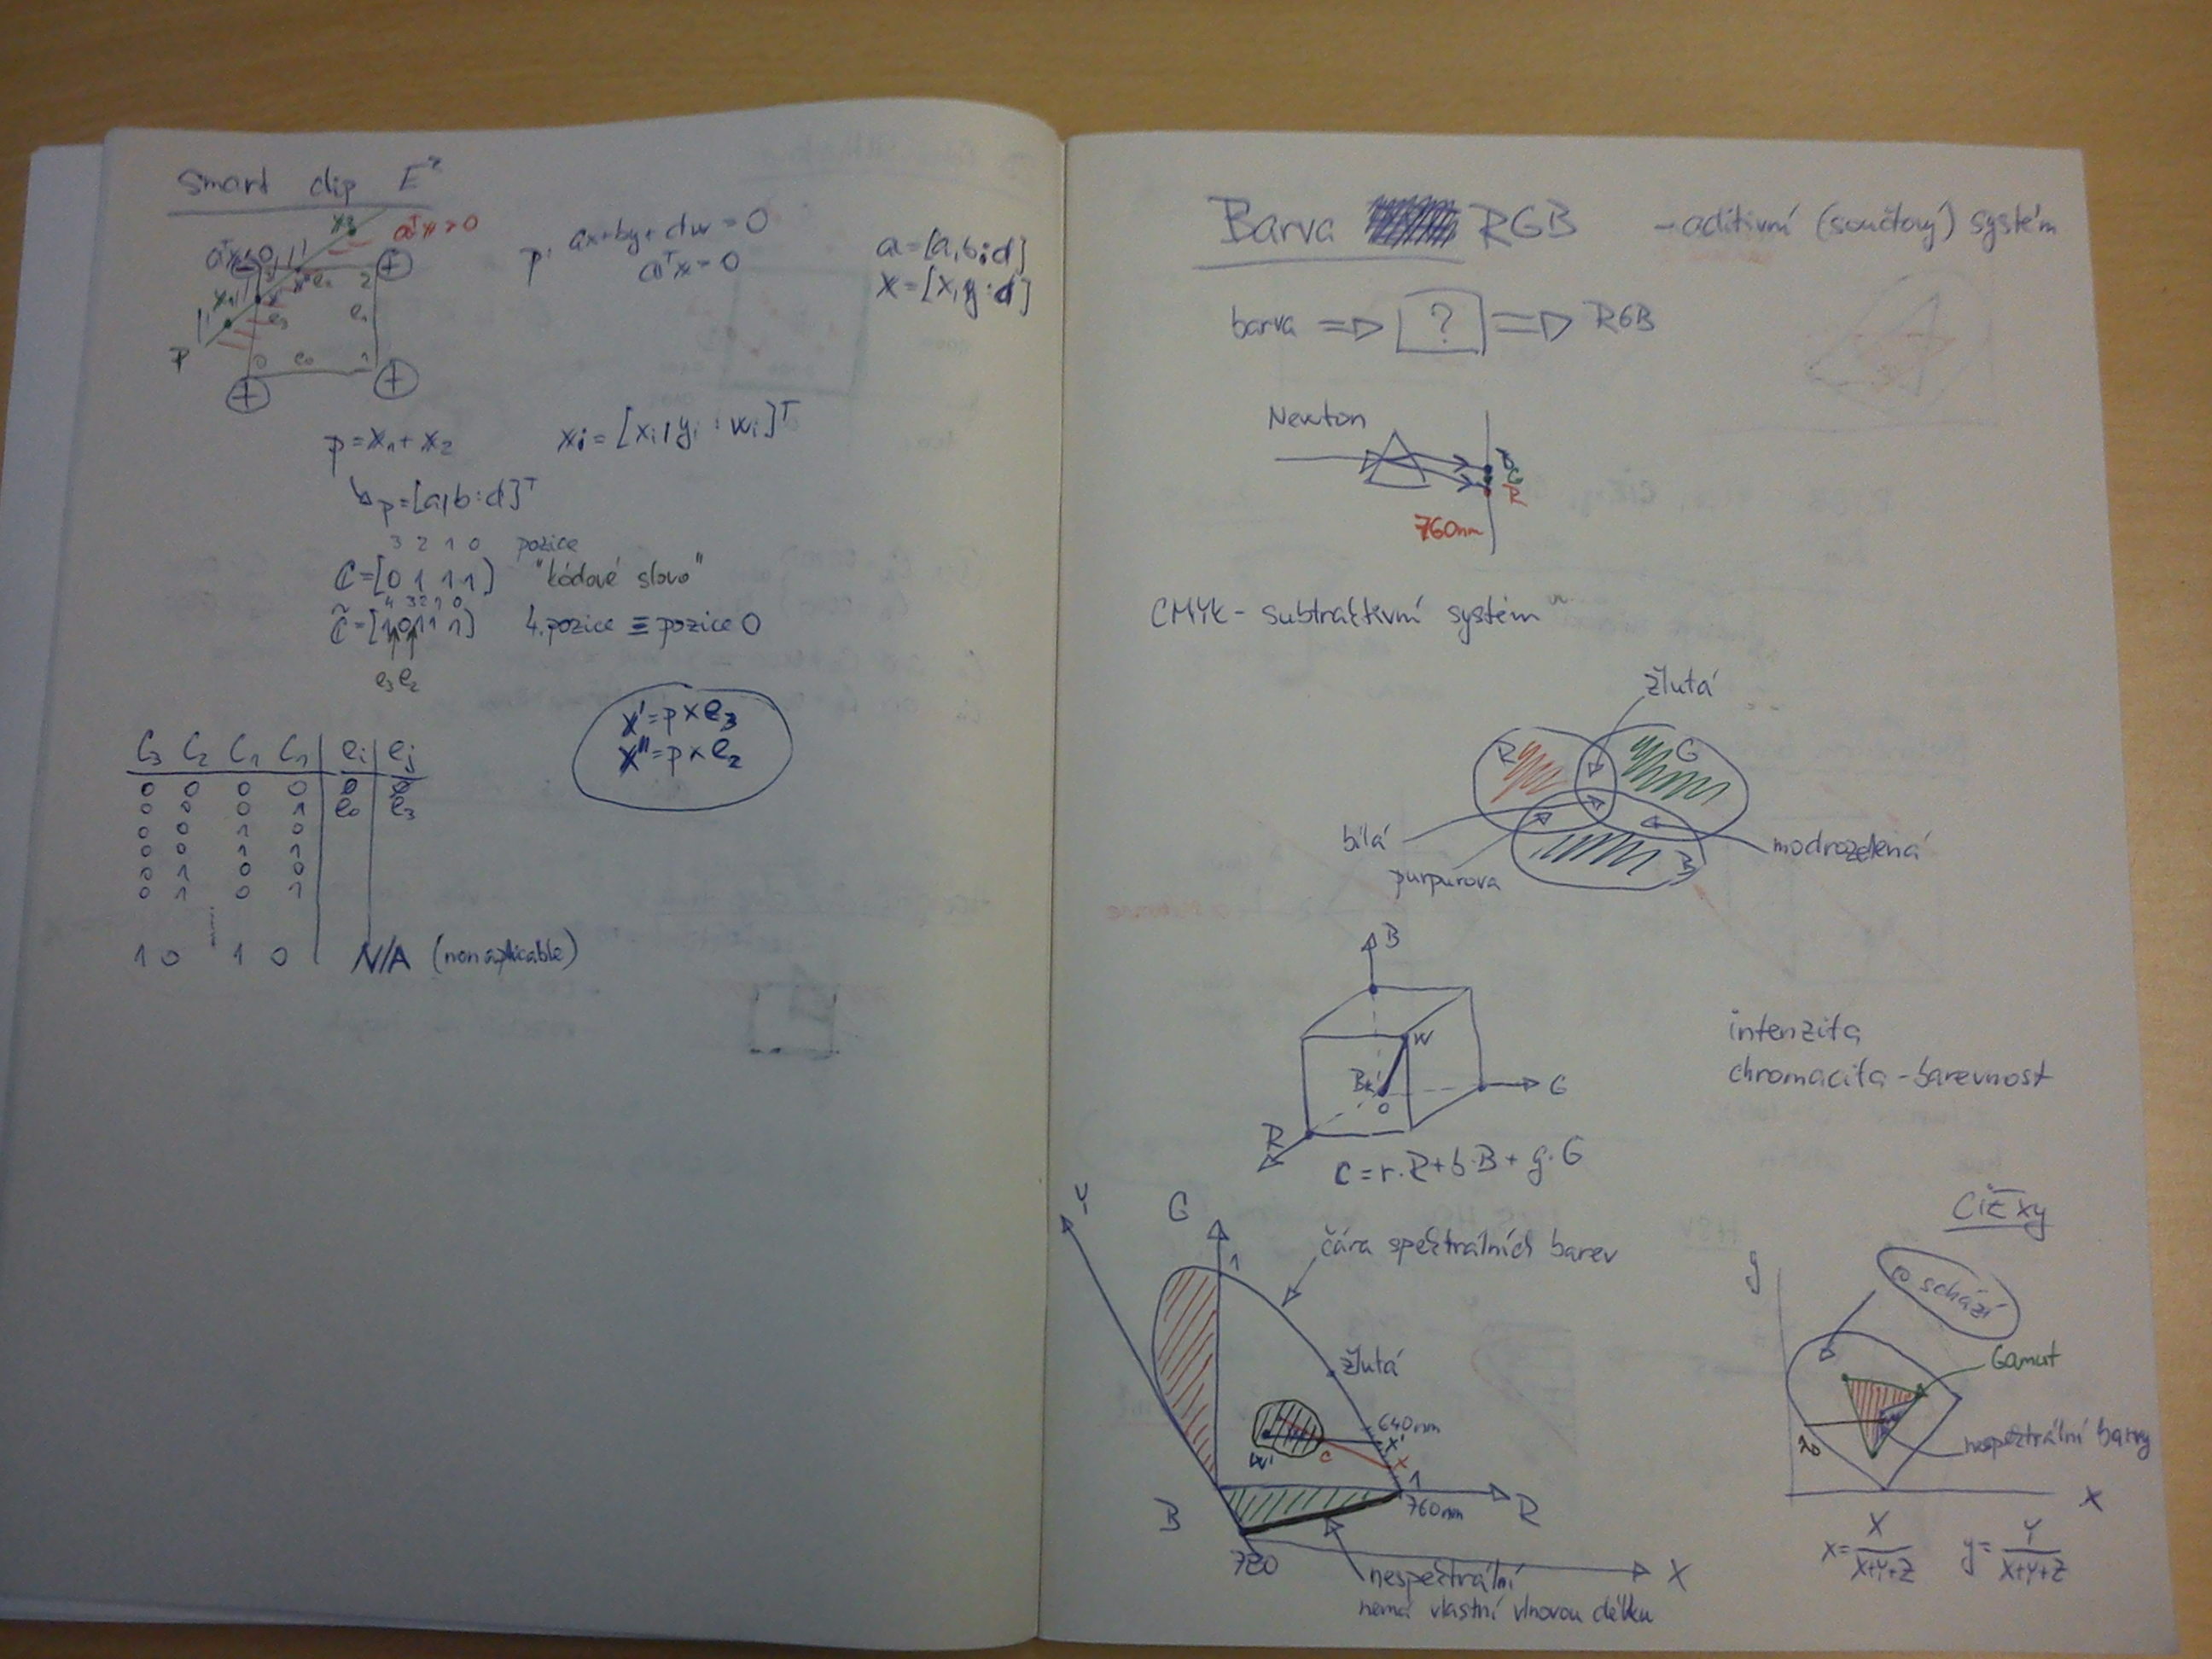 Smart clip E²
x₂
aᵀx>0
aᵀx<0
p: ax+by+dw=0
aᵀx=0
a=[a,b:d]
x=[x,y:d]
x₁
x'
x''
e₂
2
e₃
e₁
p
0
e₀
1
+
+
+
p=x₁+x₂
xᵢ=[xᵢ,yᵢ:wᵢ]ᵀ
p=[a,b:d]ᵀ
3 2 1 0 pozice
C=[0 1 1 1] "kódové slovo"
4 3 2 1 0
C̃=[1 0 1 1 1] 4.pozice ≡ pozice 0
e₃ e₂
x'=p×e₃
x''=p×e₂
C₃ C₂ C₁ C₁ eᵢ eⱼ
0 0 0 0 0 0
0 0 0 1 e₀ e₃
0 0 1 0
0 0 1 1
0 1 0 0
0 1 0 1
1 0 1 0 N/A (nonaplicable)
Barva RGB - aditivní (součtový) systém
barva ⇒ ? ⇒ RGB
Newton
B
G
R
760nm
CMYK - subtraktivní systém
žlutá
R G
bílá
modrozelená
B
purpurova
B
W
Bk
0
G
R
intenzita
chromacita - barevnost
C=r.R+b.B+g.G
Y
G
1
čára spektrálních barev
žlutá
640nm
x'
W
c
x
1
760nm
B
R
780
X
nespektrální
nemá vlastní vlnovou délku
CIE xy
y
schází
Gamut
nespektrální barvy
x
x=X/(X+Y+Z) y=Y/(X+Y+Z)